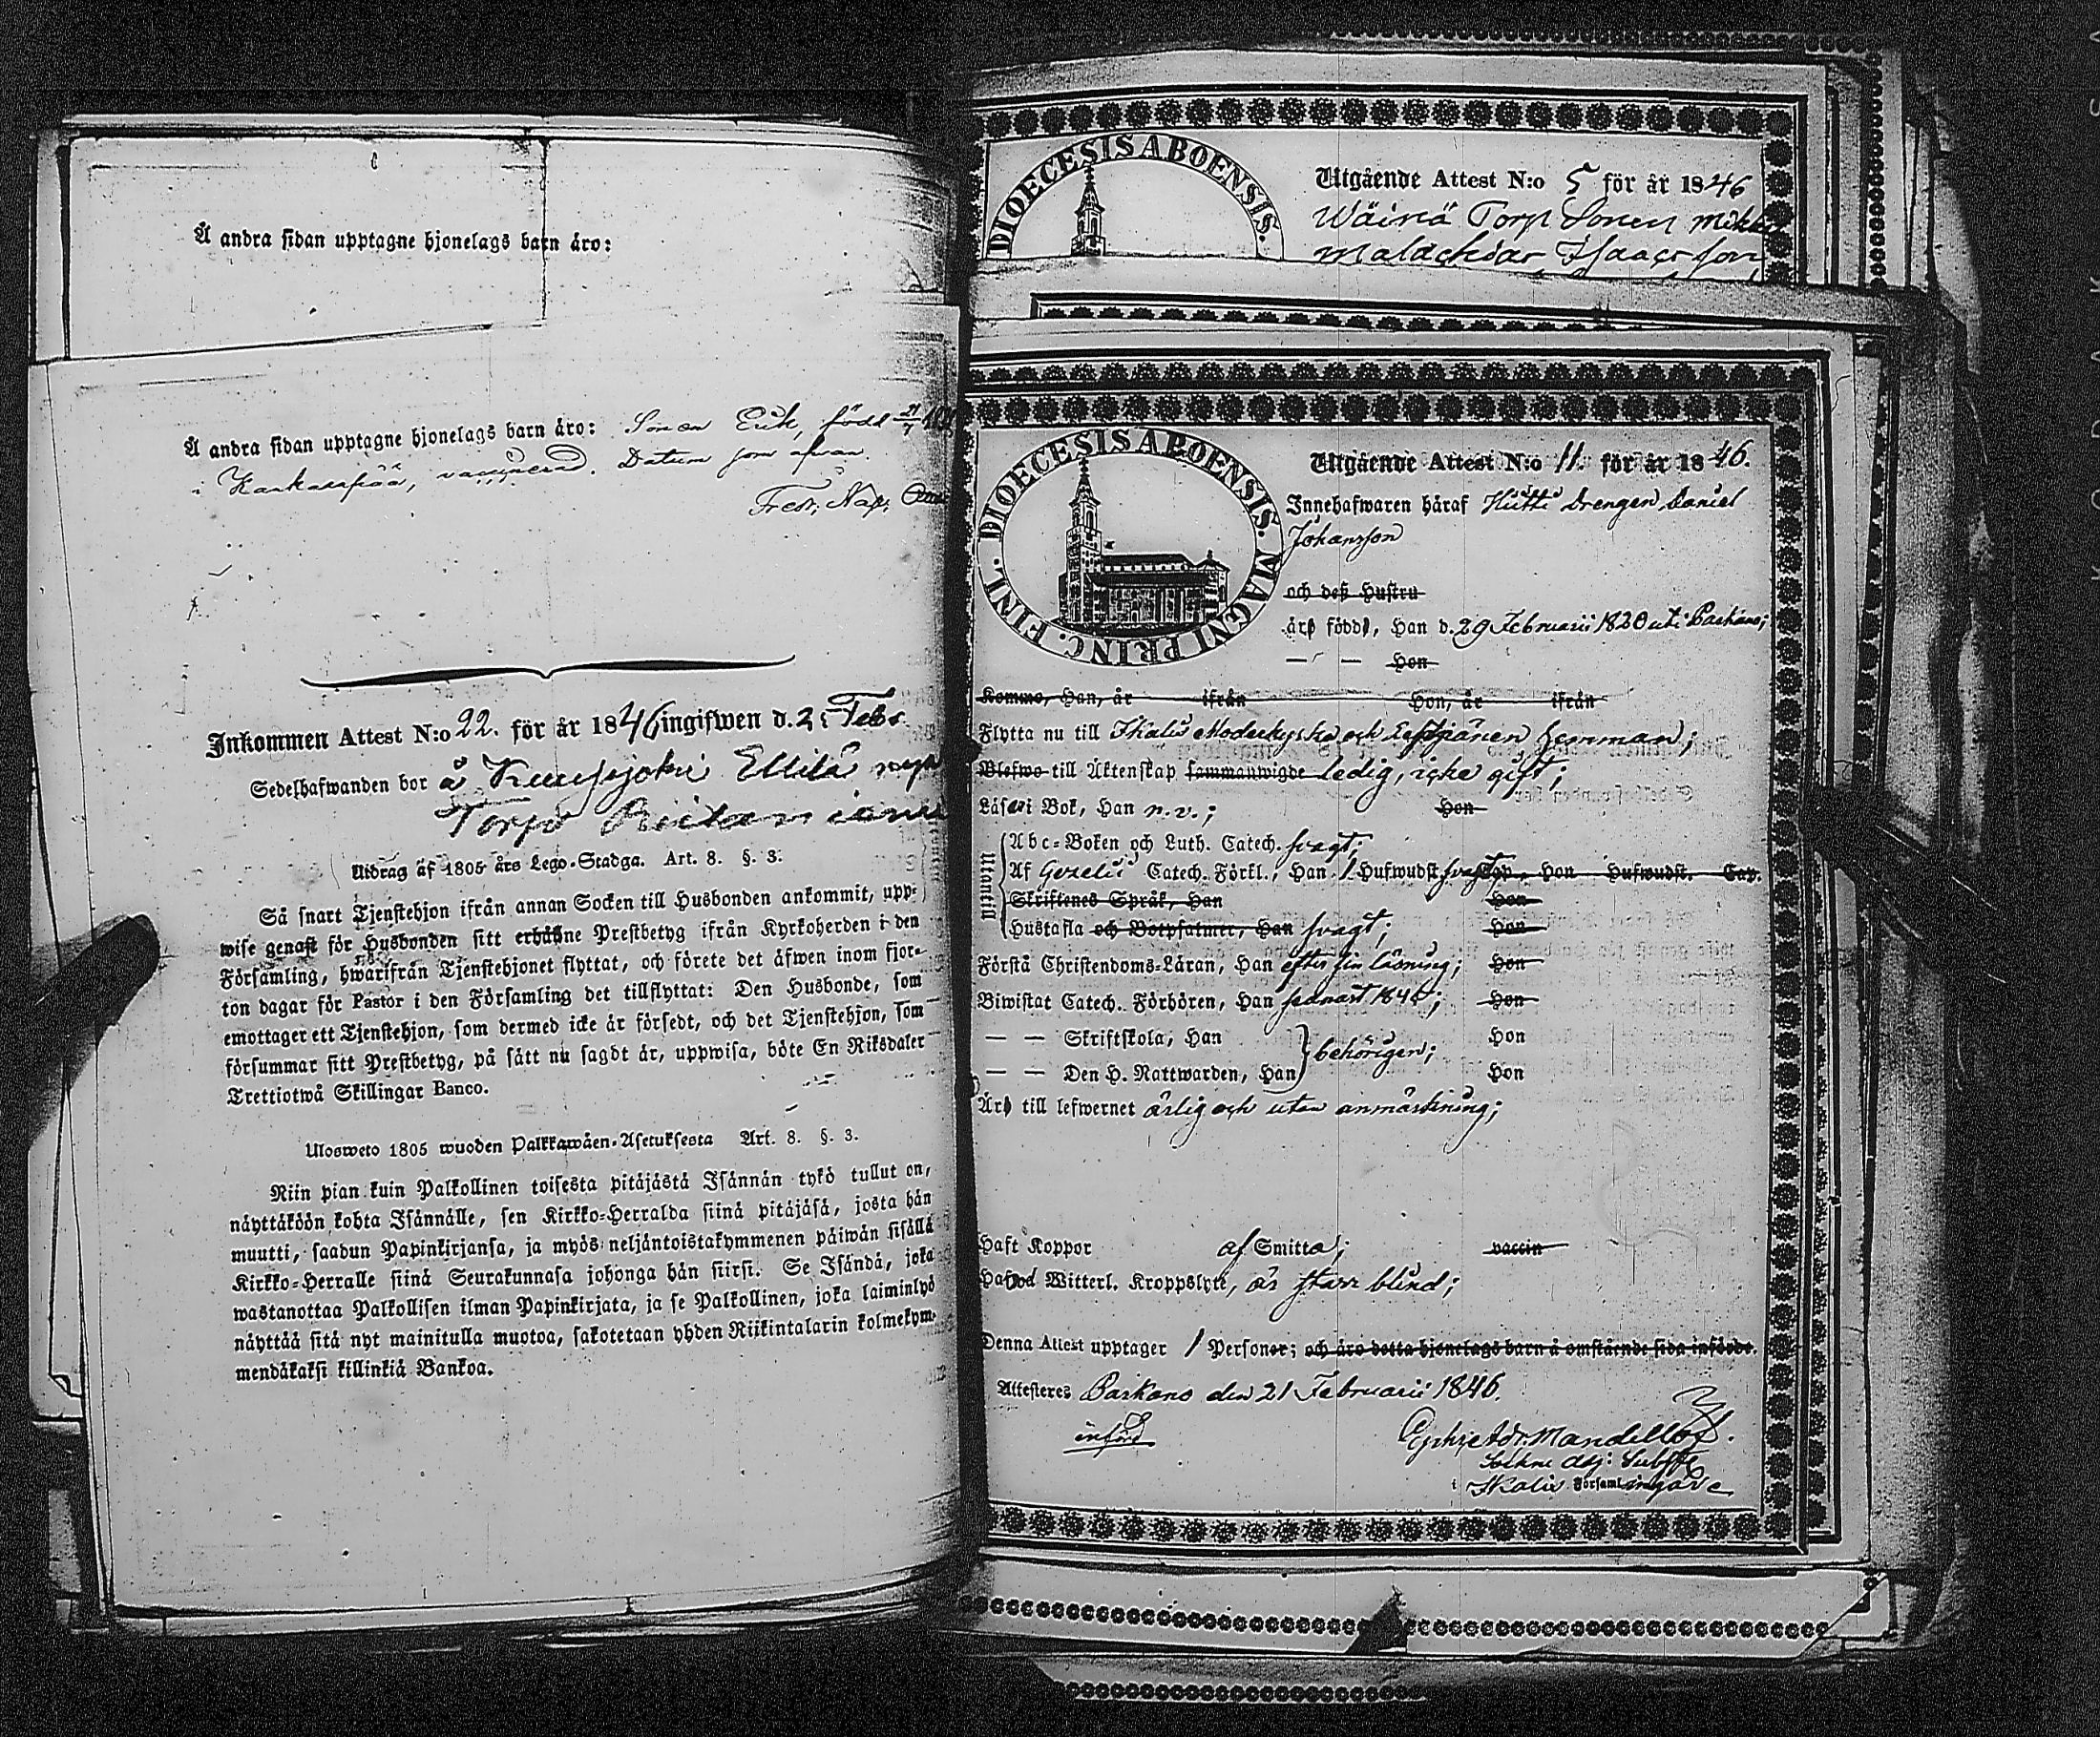 Å andra sidan upptagne hjonelags barn äro:
Å andra sidan upptagne hjonelags barn äro: Sonen Erik, född
i Karkasjöä, vaccinerad. Datum som ofvan.
Inkommen Attest N:o 22. för år 1846 ingifwen d. 25 Febr.
Sedelhafwanden bor å Kuusjoki Ellilä
Torp
Utdrag af 1805 års Lego-Stadga. Art. 8. §. 3.
Så snart Tjenstehjon ifrån annan Socken till Husbonden ankommit, upp-
wise genast för Husbonden sitt erhållne Prestbetyg ifrån Kyrkoherden i den
Församling, hwarifrån Tjenstehjonet flyttat, och förete det äfwen inom fjor-
ton dagar för Pastor i den Församling det tillflyttat: Den Husbonde, som
emottager ett Tjenstehjon, som dermed icke är försedt, och det Tjenstehjon, som
försummar sitt Prestbetyg, på sätt nu sagdt är, uppwisa, böte En Riksdaler
Trettiotwå Skillingar Banco.
Ulosweto 1805 wuoden Palkkawäen-Asetuksesta Art. 8. §. 3.
Niin pian kuin Palkollinen toisesta pitäjästä Isännän tykö tullut on,
näyttäköön kohta Isännälle, sen Kirkko-Herralda siinä pitäjäsä, josta hän
muutti, saadun Papinkirjansa, ja myös neljäntoistakymmenen päiwän sisällä
Kirkko-Herralle siinä Seurakunnasa johonga hän siirsi. Se Isändä, joka
wastanottaa Palkollisen ilman Papinkirjata, ja se Palkollinen, joka laiminlyö
näyttää sitä nyt mainitulla muotoa, sakotetaan yhden Riikintalarin kolmekym-
mendäkaksi killinkiä Bankoa.
DIOECESIS ABOENSIS.
Utgående Attest N:o 5 för år 1846
Wäinä Torp Sonen
Malachias Isaacsson
DIOECESIS ABOENSIS. MAGNI PRINC. FINL.
Utgående Attest N:o 11. för år 1846.
Innehafwaren häraf Hütti Drengen Daniel
Johansson
och deß Hustru
äro födde, Han d. 29 Februarii 1820 uti Parkano;
— — Hon
Komne, Han, år ifrån Hon, år ifrån
Flytta nu till Ikalis Moderkyrka och
Blefwo till Äktenskap sammanwigde ledig, icke gift;
Läser i Bok, Han n.v.; Hon
Utantill
Abc-Boken och Luth. Catech. svagt;
Af Gezelii Catech. Förkl., Han 1 Hufwudst. svagt Cap. Hon Hufwudst. Cap.
Skriftenes Språk, Han Hon
Hustafla och Botpsalmer, Han svagt; Hon
Förstå Christendoms-Läran, Han efter sin läsning; Hon
Biwistat Catech. Förhören, Han sednast 1846; Hon
— — Skriftskola, Han Hon
behörigen;
— — Den H. Nattwarden, Han Hon
Äro till lefwernet ärlig och utan anmärkning;
Haft Koppor af Smitta; vaccin
Hafwa Witterl. Kroppslyte, är starr blind;
Denna Attest upptager 1 Personer; och äro detta hjonelags barn å omstående sida införde.
Attesteres Parkano den 21 Februarii 1846.
införd
Mandellöf.
i Ikalis Församl.